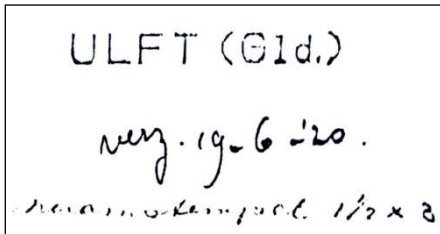 ULFT (Gld.)
verz. 19-6-'20.
1/2 x